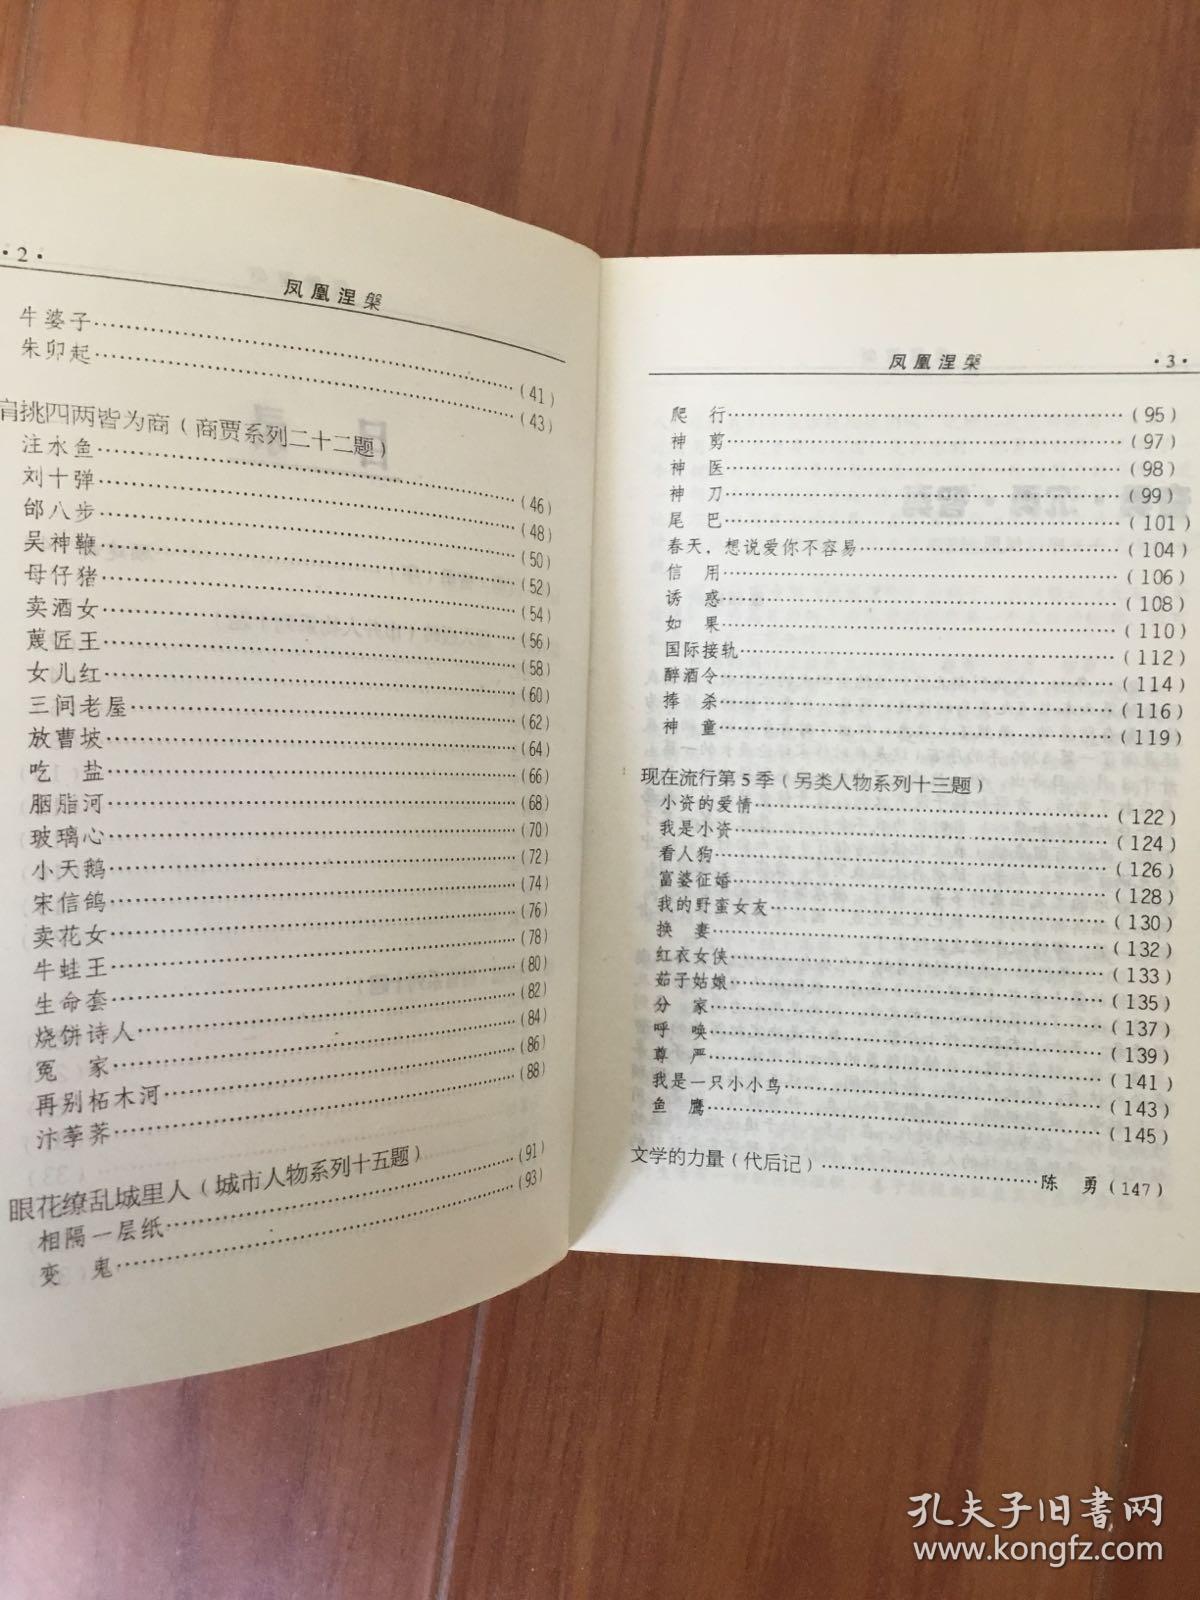 ·2·
凤凰涅槃
牛婆子……(41)
朱卯起……(43)
肩挑四两皆为商（商贾系列二十二题）
注水鱼……(46)
刘十弹……(48)
邰八步……(50)
吴神鞭……(52)
母仔猪……(54)
卖酒女……(56)
蔑匠王……(58)
女儿红……(60)
三间老屋……(62)
放曹坡……(64)
吃　盐……(66)
胭脂河……(68)
玻璃心……(70)
小天鹅……(72)
宋信鸽……(74)
卖花女……(76)
牛蛙王……(78)
生命套……(80)
烧饼诗人……(82)
冤　家……(84)
再别柘木河……(86)
汴荸荠……(88)
眼花缭乱城里人（城市人物系列十五题）
相隔一层纸……(91)
变　鬼……(93)
凤凰涅槃
·3·
爬　行……(95)
神　剪……(97)
神　医……(98)
神　刀……(99)
尾　巴……(101)
春天，想说爱你不容易……(104)
信　用……(106)
诱　惑……(108)
如　果……(110)
国际接轨……(112)
醉酒令……(114)
捧　杀……(116)
神　童……(119)
现在流行第5季（另类人物系列十三题）
小资的爱情……(122)
我是小资……(124)
看人狗……(126)
富婆征婚……(128)
我的野蛮女友……(130)
换　妻……(132)
红衣女侠……(133)
茄子姑娘……(135)
分　家……(137)
呼　唤……(139)
尊　严……(141)
我是一只小小鸟……(143)
鱼　鹰……(145)
文学的力量（代后记）……陈　勇(147)
孔夫子旧书网
www.kongfz.com